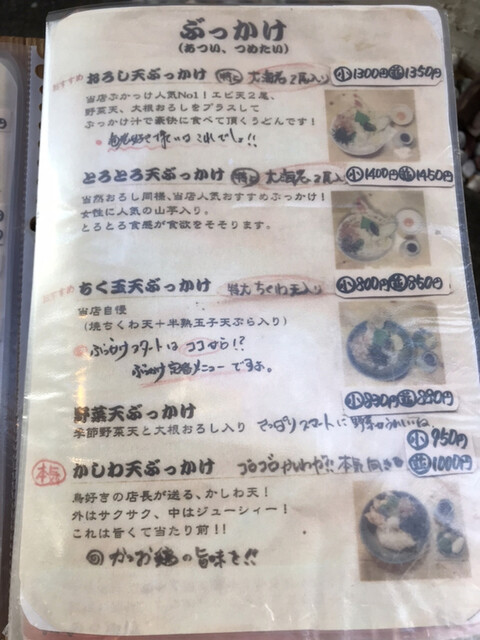 ぶっかけ
(あつい、つめたい)
おすすめ おろし天ぶっかけ 大海老2尾入り 小1300円 並1350円
当店ぶっかけ人気No1！エビ天2尾、
野菜天、大根おろしをプラスして
ぶっかけ汁で豪快に食べて頂くうどんです！
これでしょ!!
とろとろ天ぶっかけ 大海老2尾入り 小1400円 並1450円
当然おろし同様、当店人気おすすめぶっかけ！
女性に人気の山芋入り。
とろとろ食感が食欲をそそります。
おすすめ ちく玉天ぶっかけ 特大ちくわ天入り 小800円 並850円
当店自慢
(焼ちくわ天＋半熟玉子天ぷら入り)
ぶっかけスタートはココから!?
ぶっかけ定番メニューですよ。
小830円 並880円
野菜天ぶっかけ
季節野菜天と大根おろし入り さっぱりスマートに野菜がうれしいね
小950円
本気 かしわ天ぶっかけ ゴロゴロかしわだ!!本気向き 並1000円
鳥好きの店長が送る、かしわ天！
外はサクサク、中はジューシィー！
これは旨くて当たり前！！
の旨味を!!